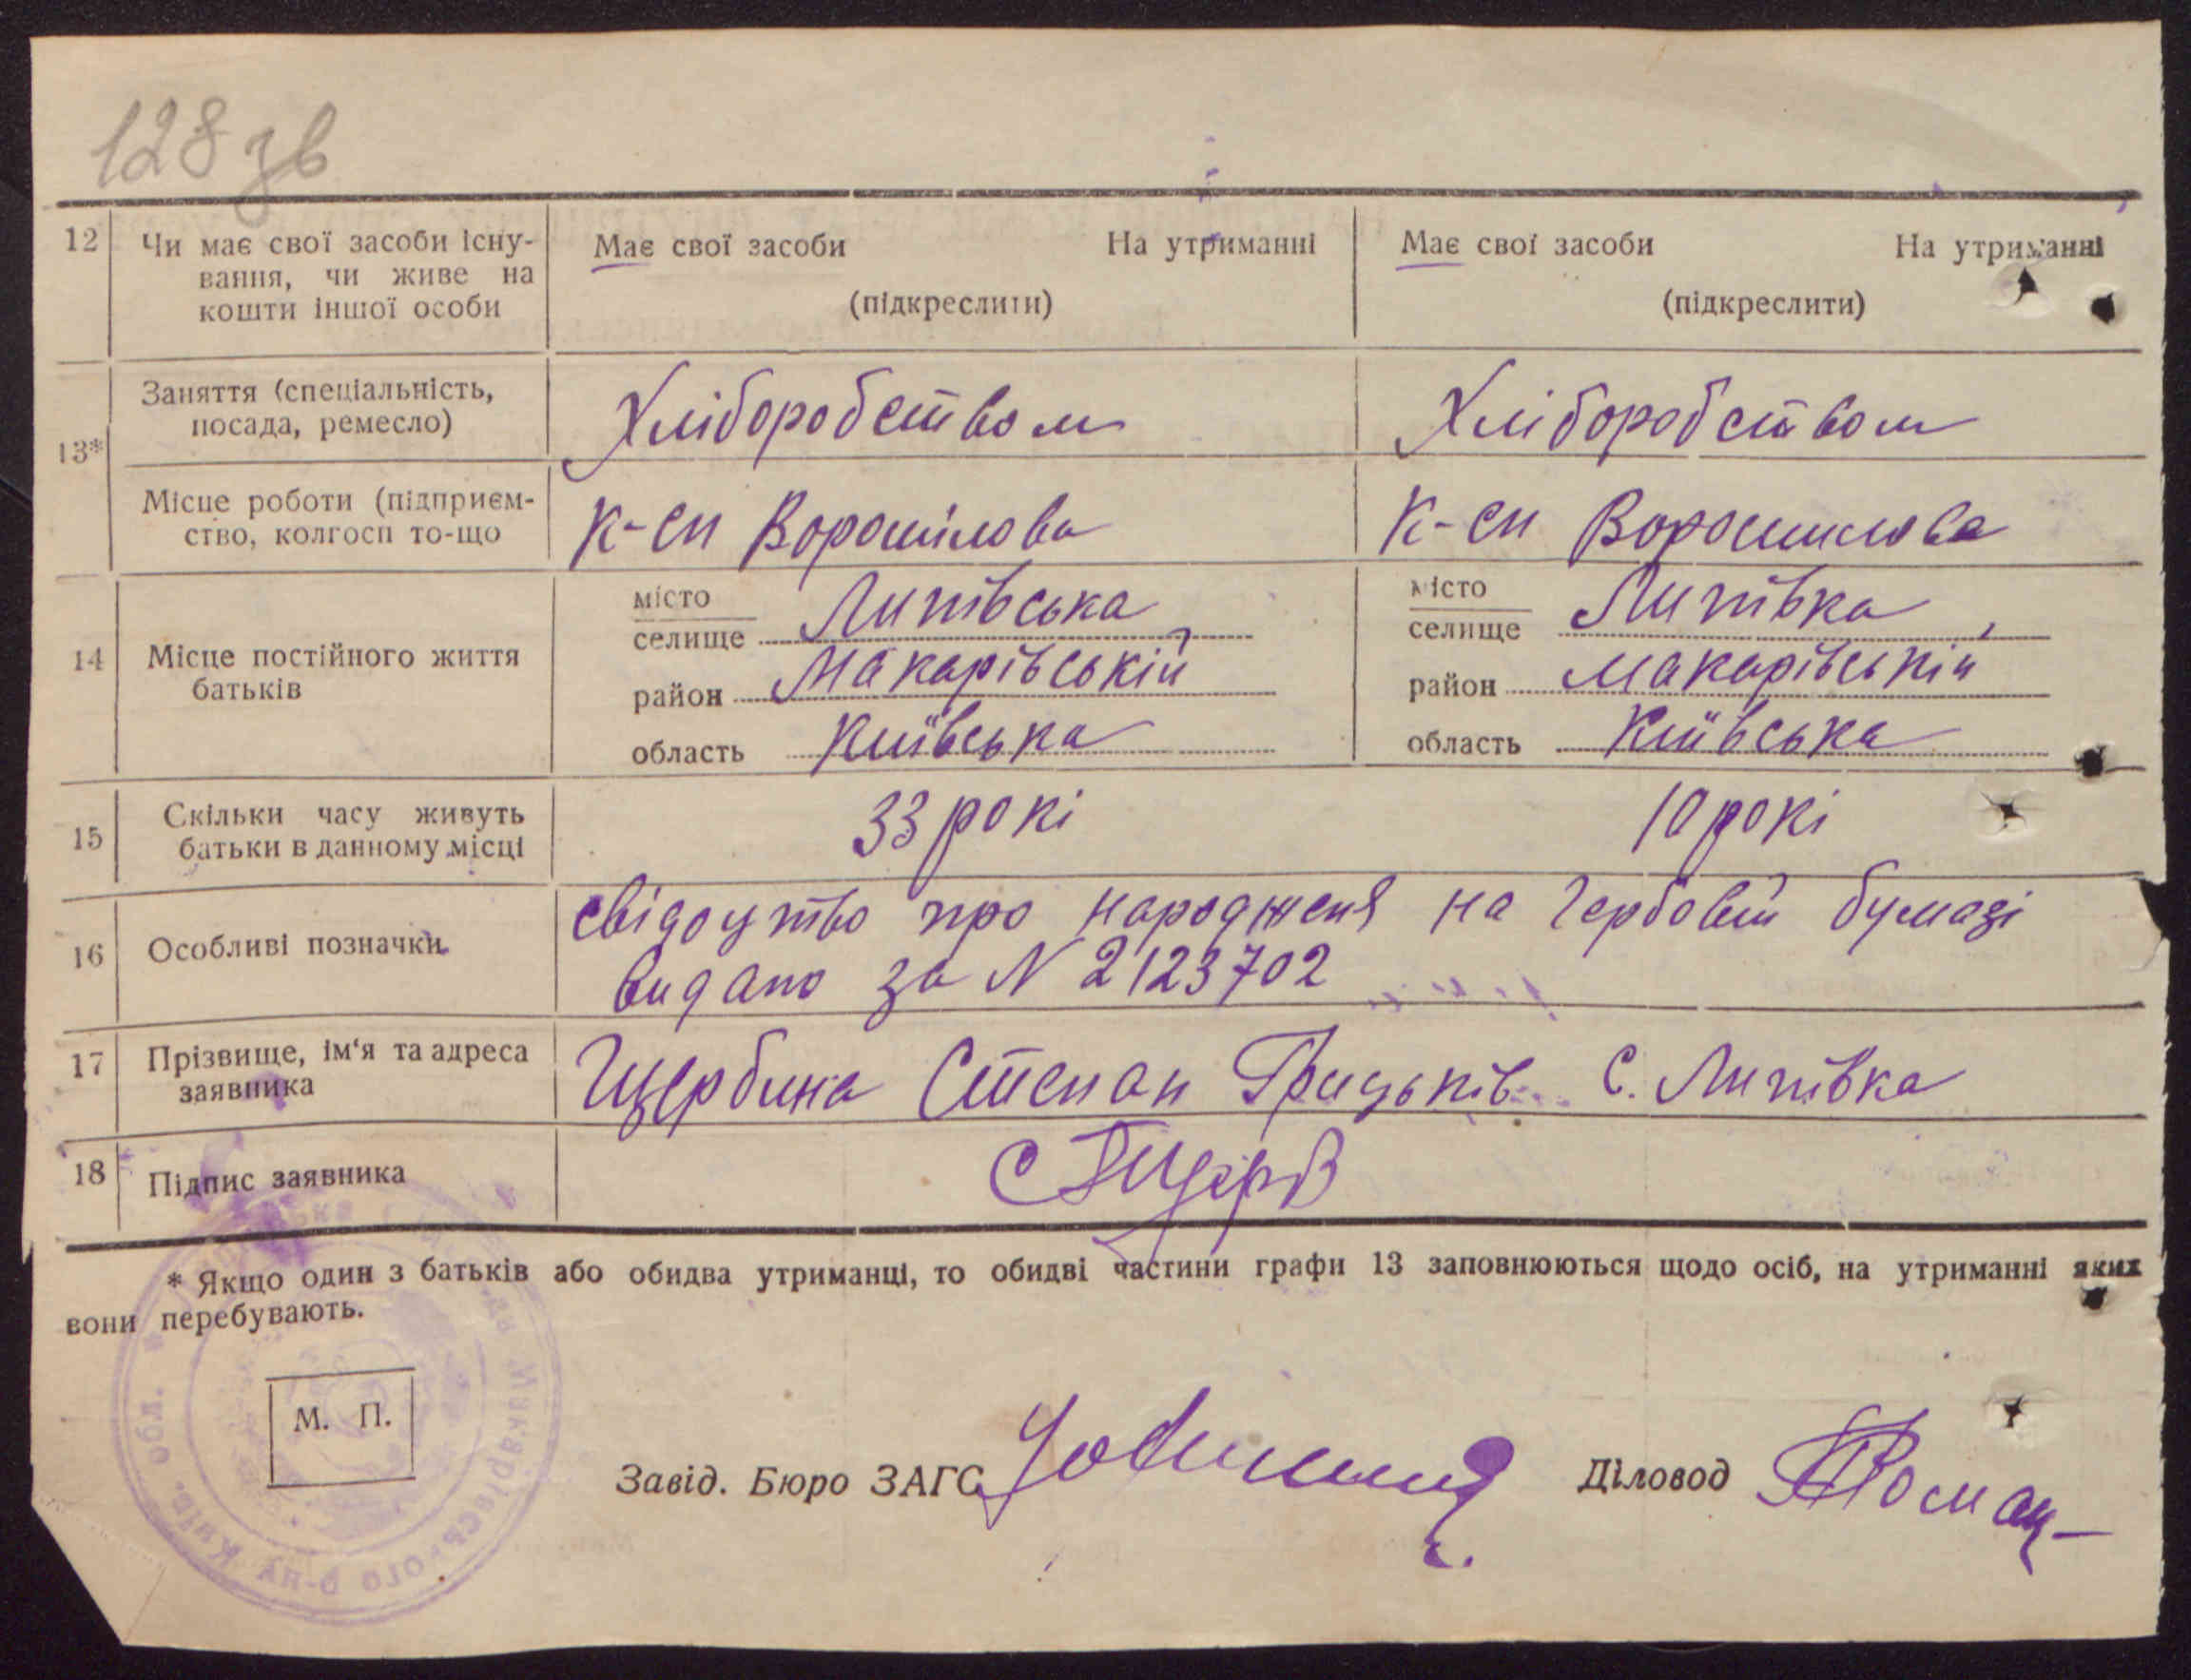 128 зв
12 Чи має свої засоби існу- Має свої засоби На утриманні Має свої засоби На утриманні
вання, чи живе на
кошти іншої особи (підкреслити) (підкреслити)
Заняття (спеціальність, Хліборобством Хліборобством
посада, ремесло)
13*
Місце роботи (підприєм- К-сп Ворошілова К-сп Ворошилова
ство, колгосп то-що
місто Липівська, місто Липівка,
селище селище
14 Місце постійного життя район Макарівській район Макарівській
батьків
область Київська область Київська
15 Скільки часу живуть 33 рокі 10 рокі
батьки в данному місці
16 Особливі позначки свідоцтво про народженя на гербовій бумазі
видано за N 2123702
17 Прізвище, ім‘я та адреса Щербина Степан Грицьків С. Липівка
заявника
18 Підпис заявника
* Якщо один з батьків або обидва утриманці, то обидві частини графи 13 заповнюються щодо осіб, на утриманні яких
вони перебувають.
М. П.
Завід. Бюро ЗАГС Діловод
Макарівського р-ну Київ. обл.